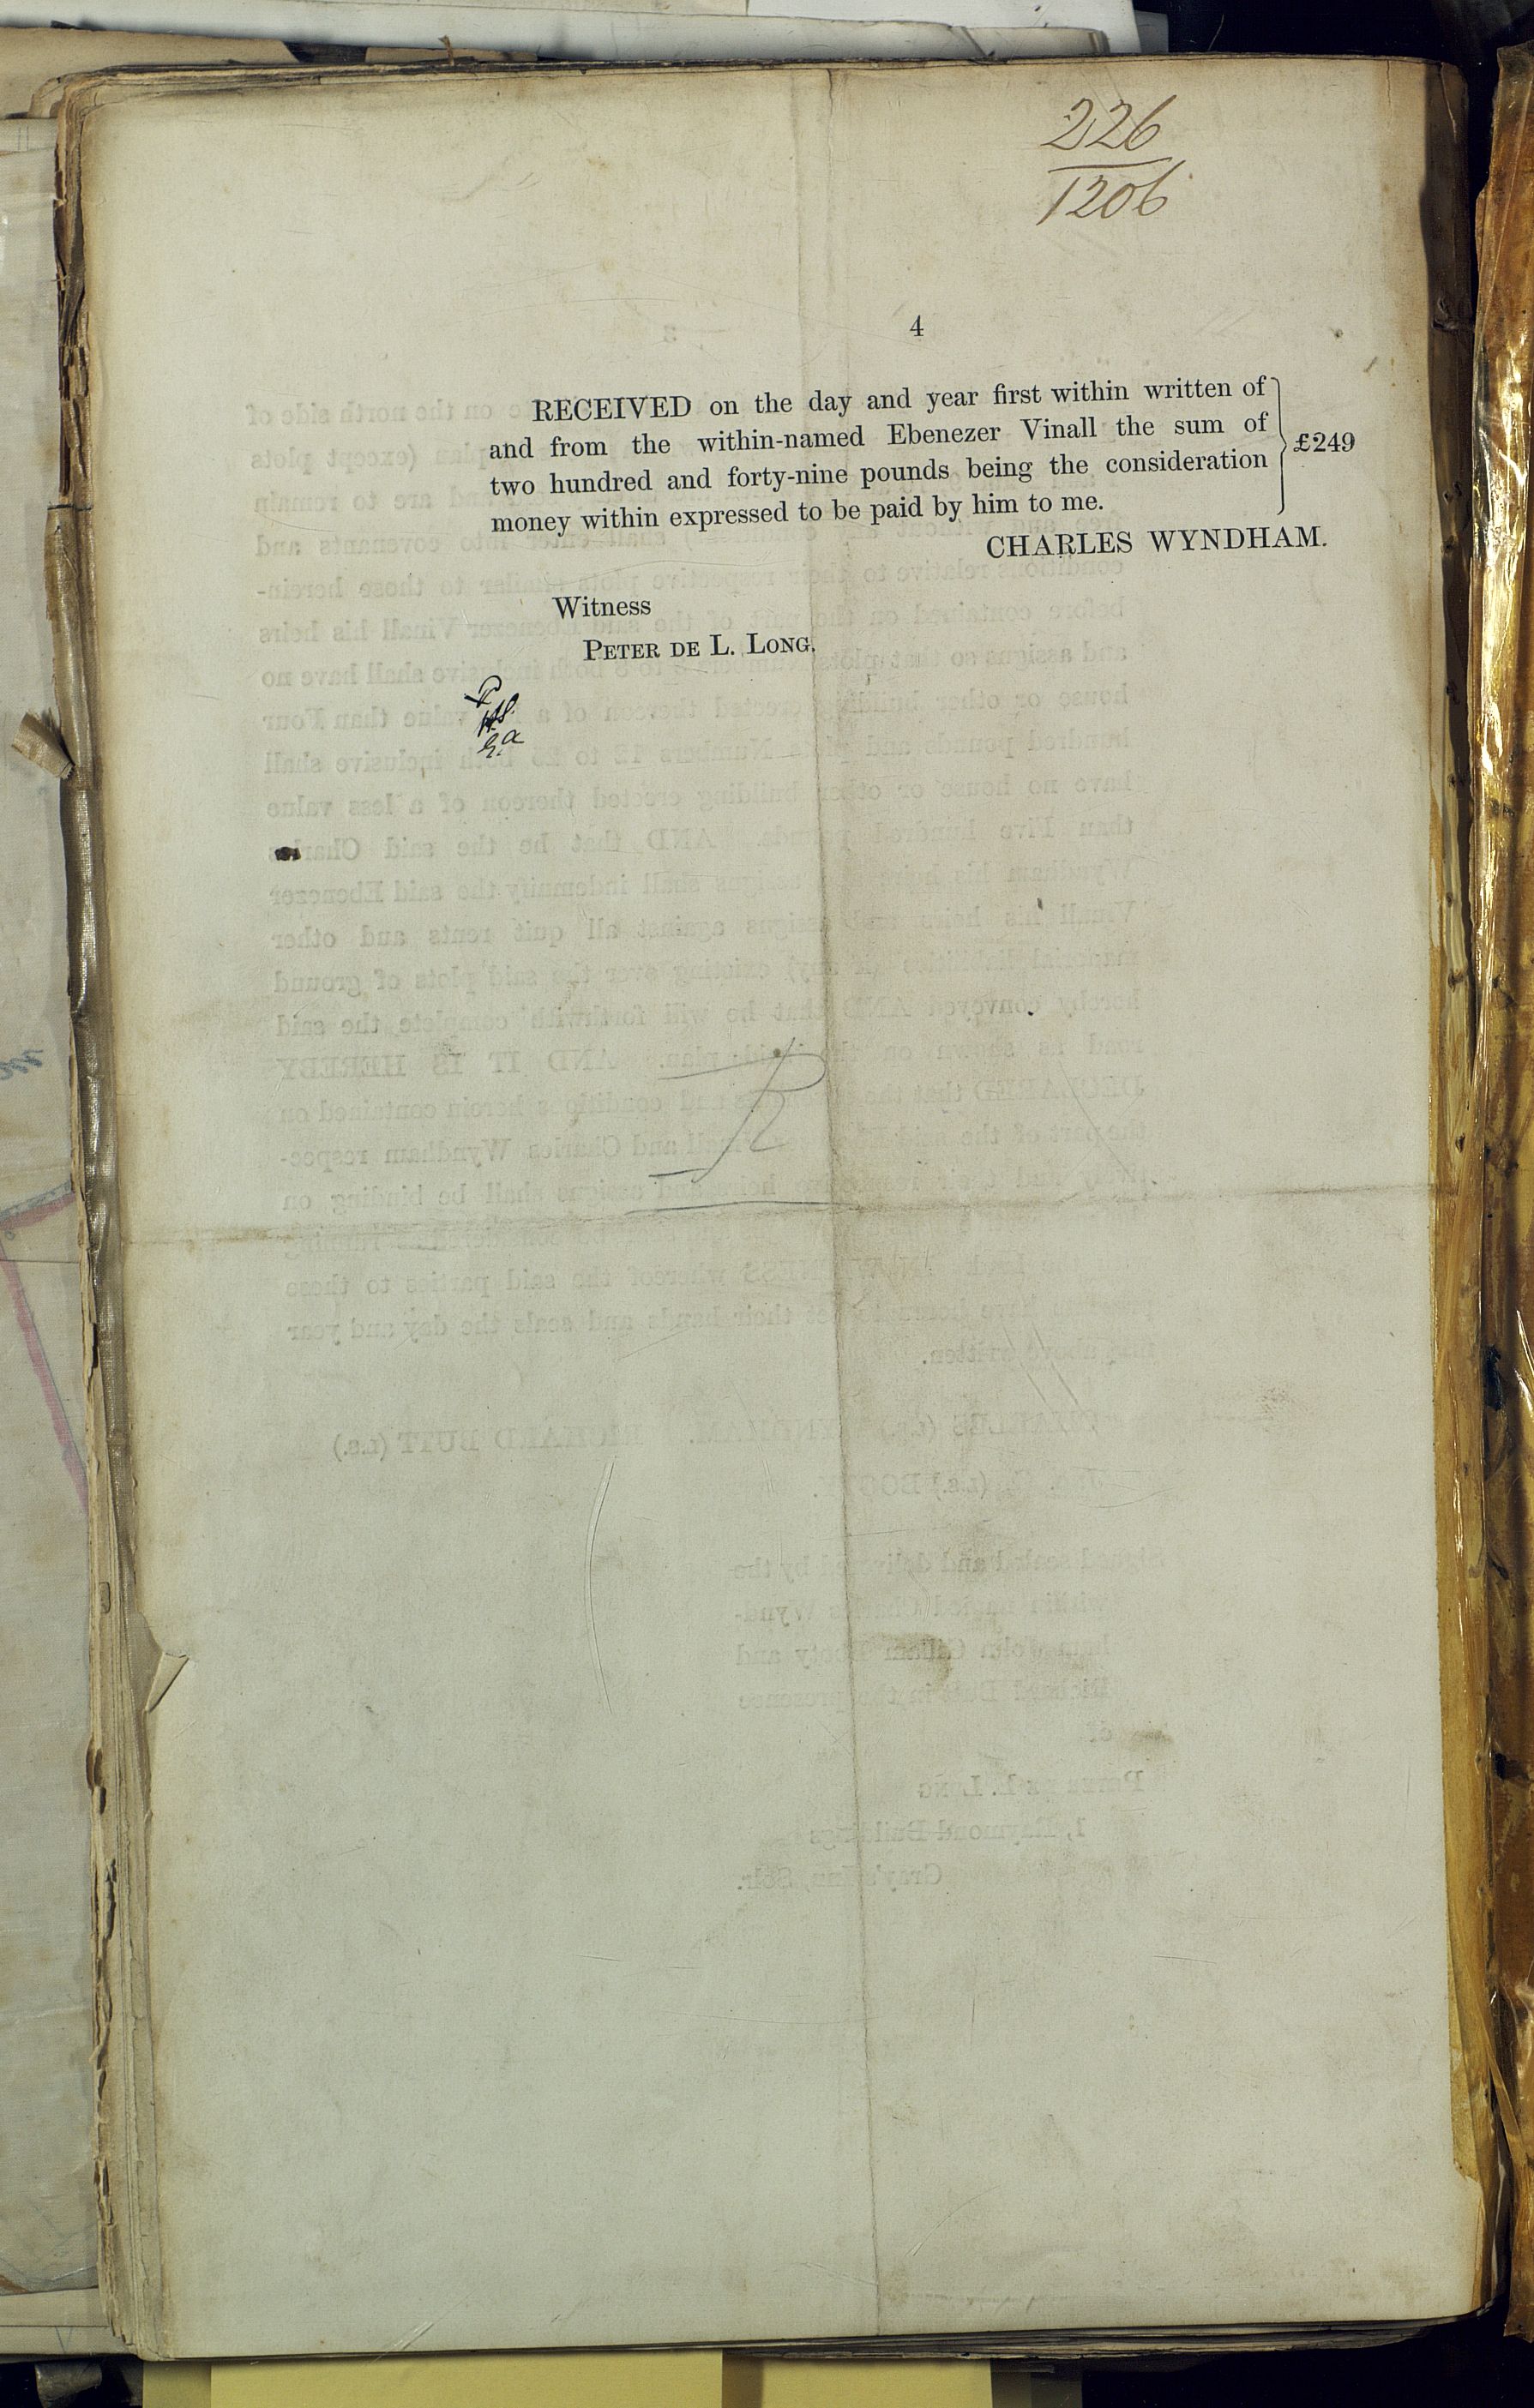 226
1206
4
RECEIVED on the day and year first within written of
and from the within-named Ebenezer Vinall the sum of
two hundred and forty-nine pounds being the consideration
money within expressed to be paid by him to me.
£249
CHARLES WYNDHAM.
Witness
PETER DE L. LONG.